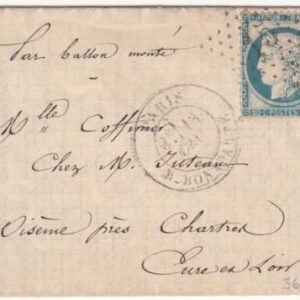 Par ballon monté
PARIS
R. BONAPARTE
20 C POSTES
Mlle Coffinier
Chez M. Juteau
Oisème près Chartres
Eure et Loir
36